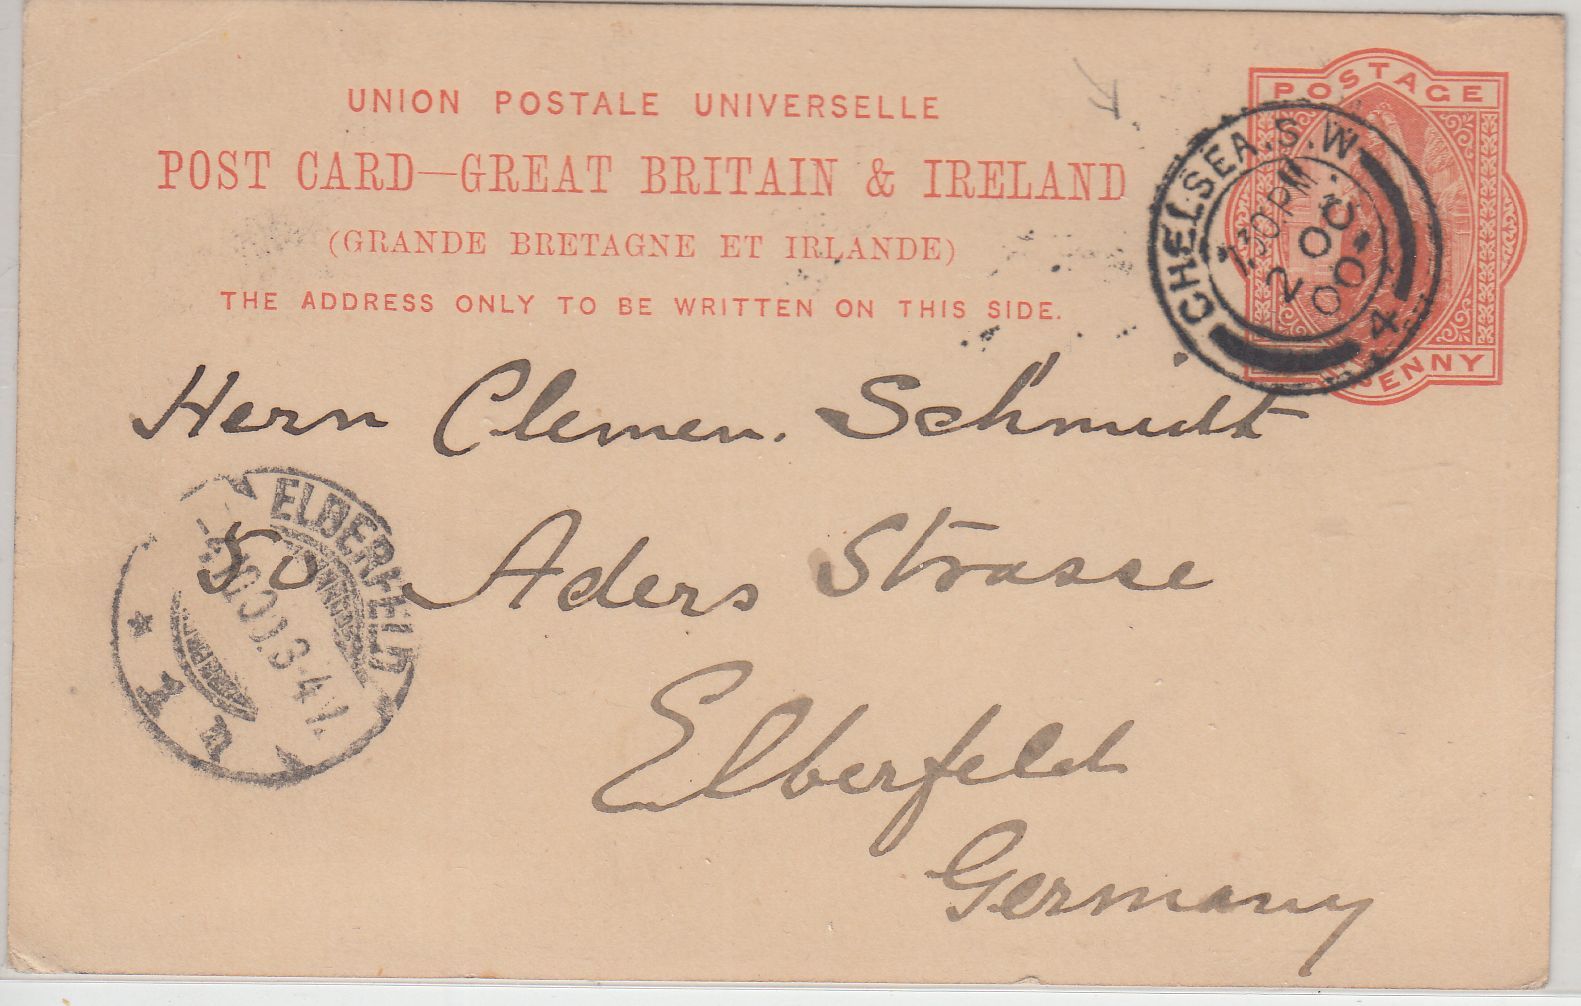 UNION POSTALE UNIVERSELLE
POST CARD—GREAT BRITAIN & IRELAND
(GRANDE BRETAGNE ET IRLANDE)
THE ADDRESS ONLY TO BE WRITTEN ON THIS SIDE.
POSTAGE
PENNY
CHELSEA.S.W.
7.30PM
2 OC
00
4
Herr Clemen. Schmidt
50 Aders Strasse
Elberfeld
Germany
ELBERFELD
10.00.3-4V.